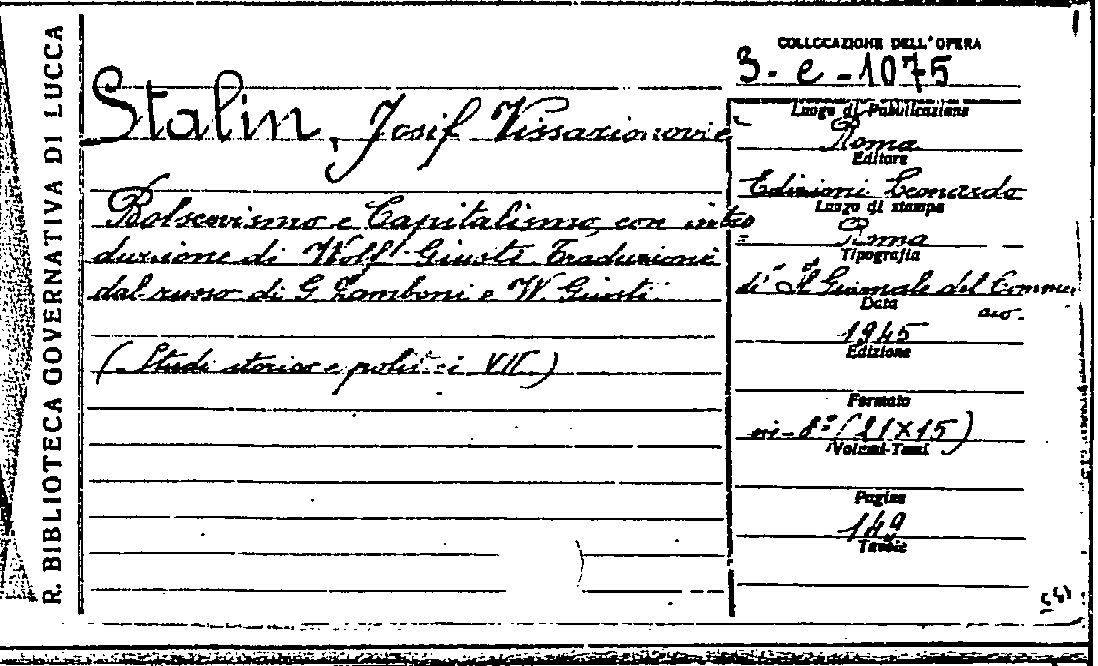 R. BIBLIOTECA GOVERNATIVA DI LUCCA
COLLOCAZIONE DELL'OPERA
3-e-1075
Stalin, Josif Vissarionovic
Bolscevismo e Capitalismo, con intro=
duzione di Wolf Giusti Traduzione
dal russo di G. Lamboni e W. Giusti
(Studi storici e politici VII.)
Luogo di Pubblicazione
Roma
Editore
Edizioni Leonardo
Luogo di stampa
Roma
Tipografia
di "Il Giornale del Commer
cio.
Data
1945
Edizione
Formato
in-8° (21X15)
Volumi-Tomi
Pagine
149
Tavole